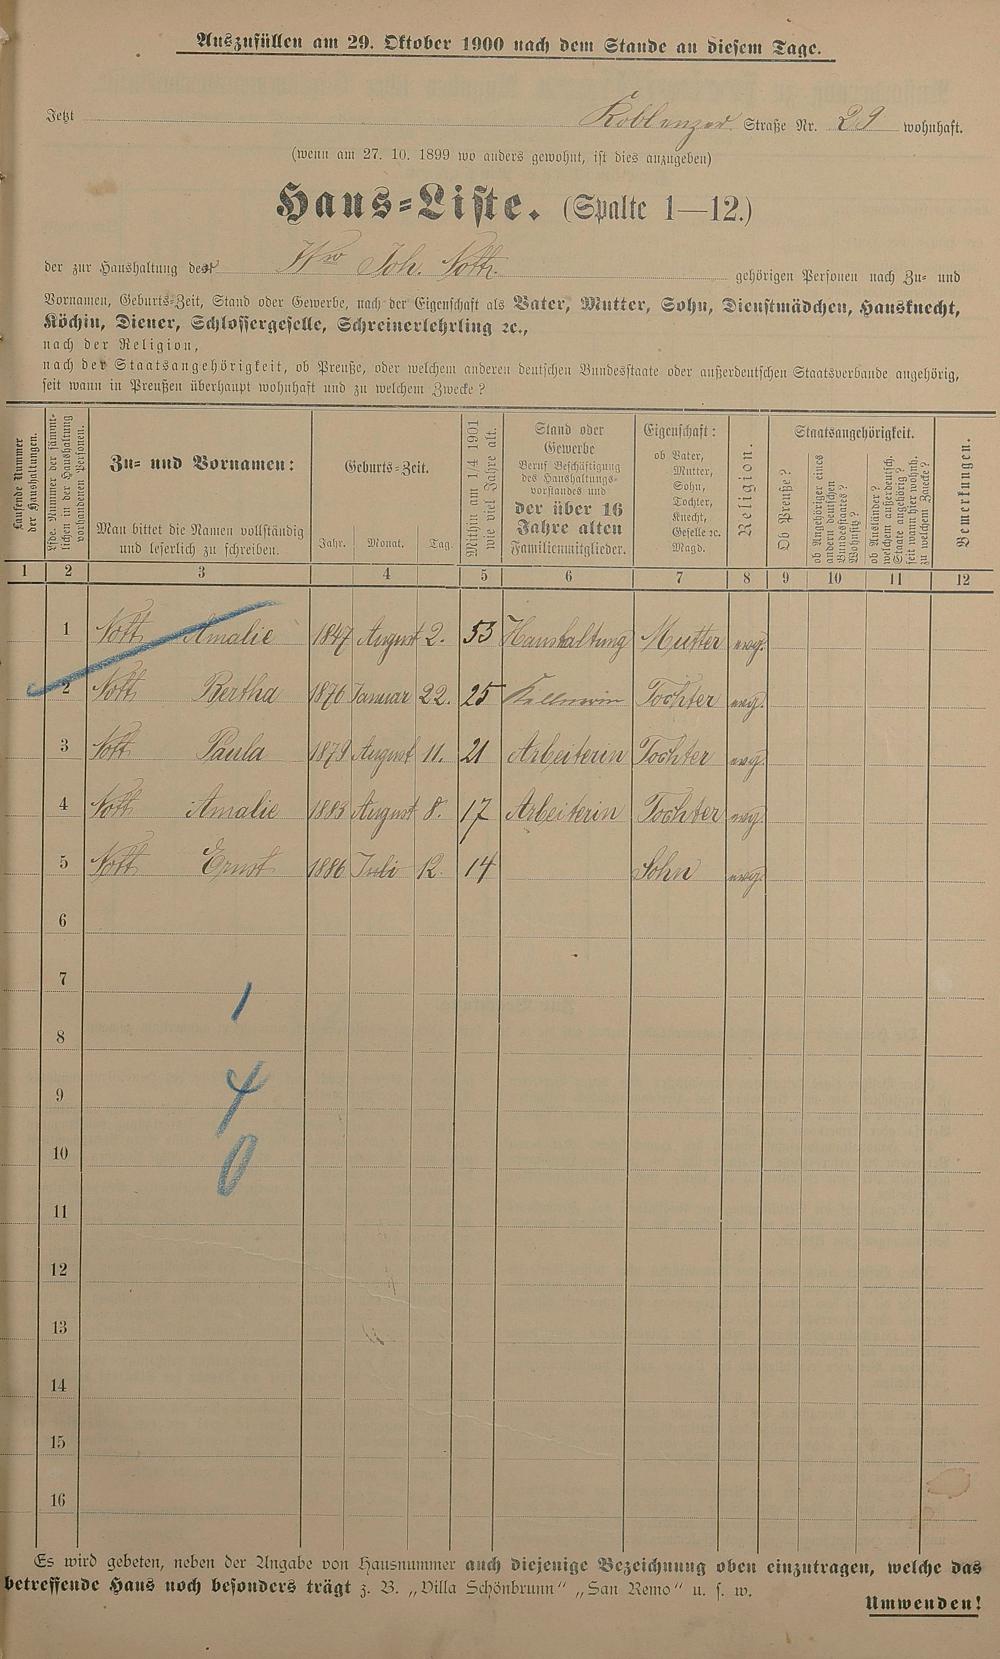 Auszufüllen am 29. Oktober 1900 nach dem Stande an diesem Tage.
Jetzt Koblenzer Straße Nr. 29 wohnhaft.
(wenn am 27. 10. 1899 wo anders gewohnt, ist dies anzugeben)
Haus-Liste. (Spalte 1—12.)
der zur Haushaltung der Wwe Joh. Nott. gehörigen Personen nach Zu- und
Vornamen, Geburts-Zeit, Stand oder Gewerbe, nach der Eigenschaft als Vater, Mutter, Sohn, Dienstmädchen, Hausknecht,
Köchin, Diener, Schlossergeselle, Schreinerlehrling ꝛc.,
nach der Religion,
nach der Staatsangehörigkeit, ob Preuße, oder welchem anderen deutschen Bundesstaate oder außerdeutschen Staatsverbande angehörig,
seit wann in Preußen überhaupt wohnhaft und zu welchem Zwecke?
Laufende Nummer
der Haushaltungen.
Lfde. Nummer der sämmt-
lichen in der Haushaltung
vorhandenen Personen.
Zu- und Vornamen:
Man bittet die Namen vollständig
und leserlich zu schreiben.
Geburts-Zeit.
Jahr. Monat. Tag.
Mithin am 1/4 1901
wie viel Jahre alt.
Stand oder
Gewerbe
Beruf Beschäftigung
des Haushaltungs-
vorstandes und
der über 16
Jahre alten
Familienmitglieder.
Eigenschaft:
ob Vater,
Mutter,
Sohn,
Tochter,
Knecht,
Geselle ꝛc.
Magd.
Religion.
Staatsangehörigkeit.
Ob Preuße?
ob Angehöriger eines
andern deutschen
Bundesstaates?
Wohnsitz?
ob Ausländer?
welchem außerdeutsch.
Staate angehörig?
seit wann hier wohnh.
zu welchem Zwecke?
Bemerkungen.
1 2 3 4 5 6 7 8 9 10 11 12
1 Nott Amalie 1847 August 2. 53 Haushaltung Mutter evg.
2 Nott Bertha 1876 Januar 22. 25 Kellnerin Tochter evg.
3 Nott Paula 1879 August 11. 21 Arbeiterin Tochter evg.
4 Nott Amalie 1883 August 8. 17 Arbeiterin Tochter evg.
5 Nott Ernst 1886 Juli 12. 14 Sohn evg.
6
7
1
8
9
4
10
0
11
12
13
14
15
16
Es wird gebeten, neben der Angabe von Hausnummer auch diejenige Bezeichnung oben einzutragen, welche das
betreffende Haus noch besonders trägt z. B. „Villa Schönbrunn" „San Remo" u. s. w.
Umwenden!